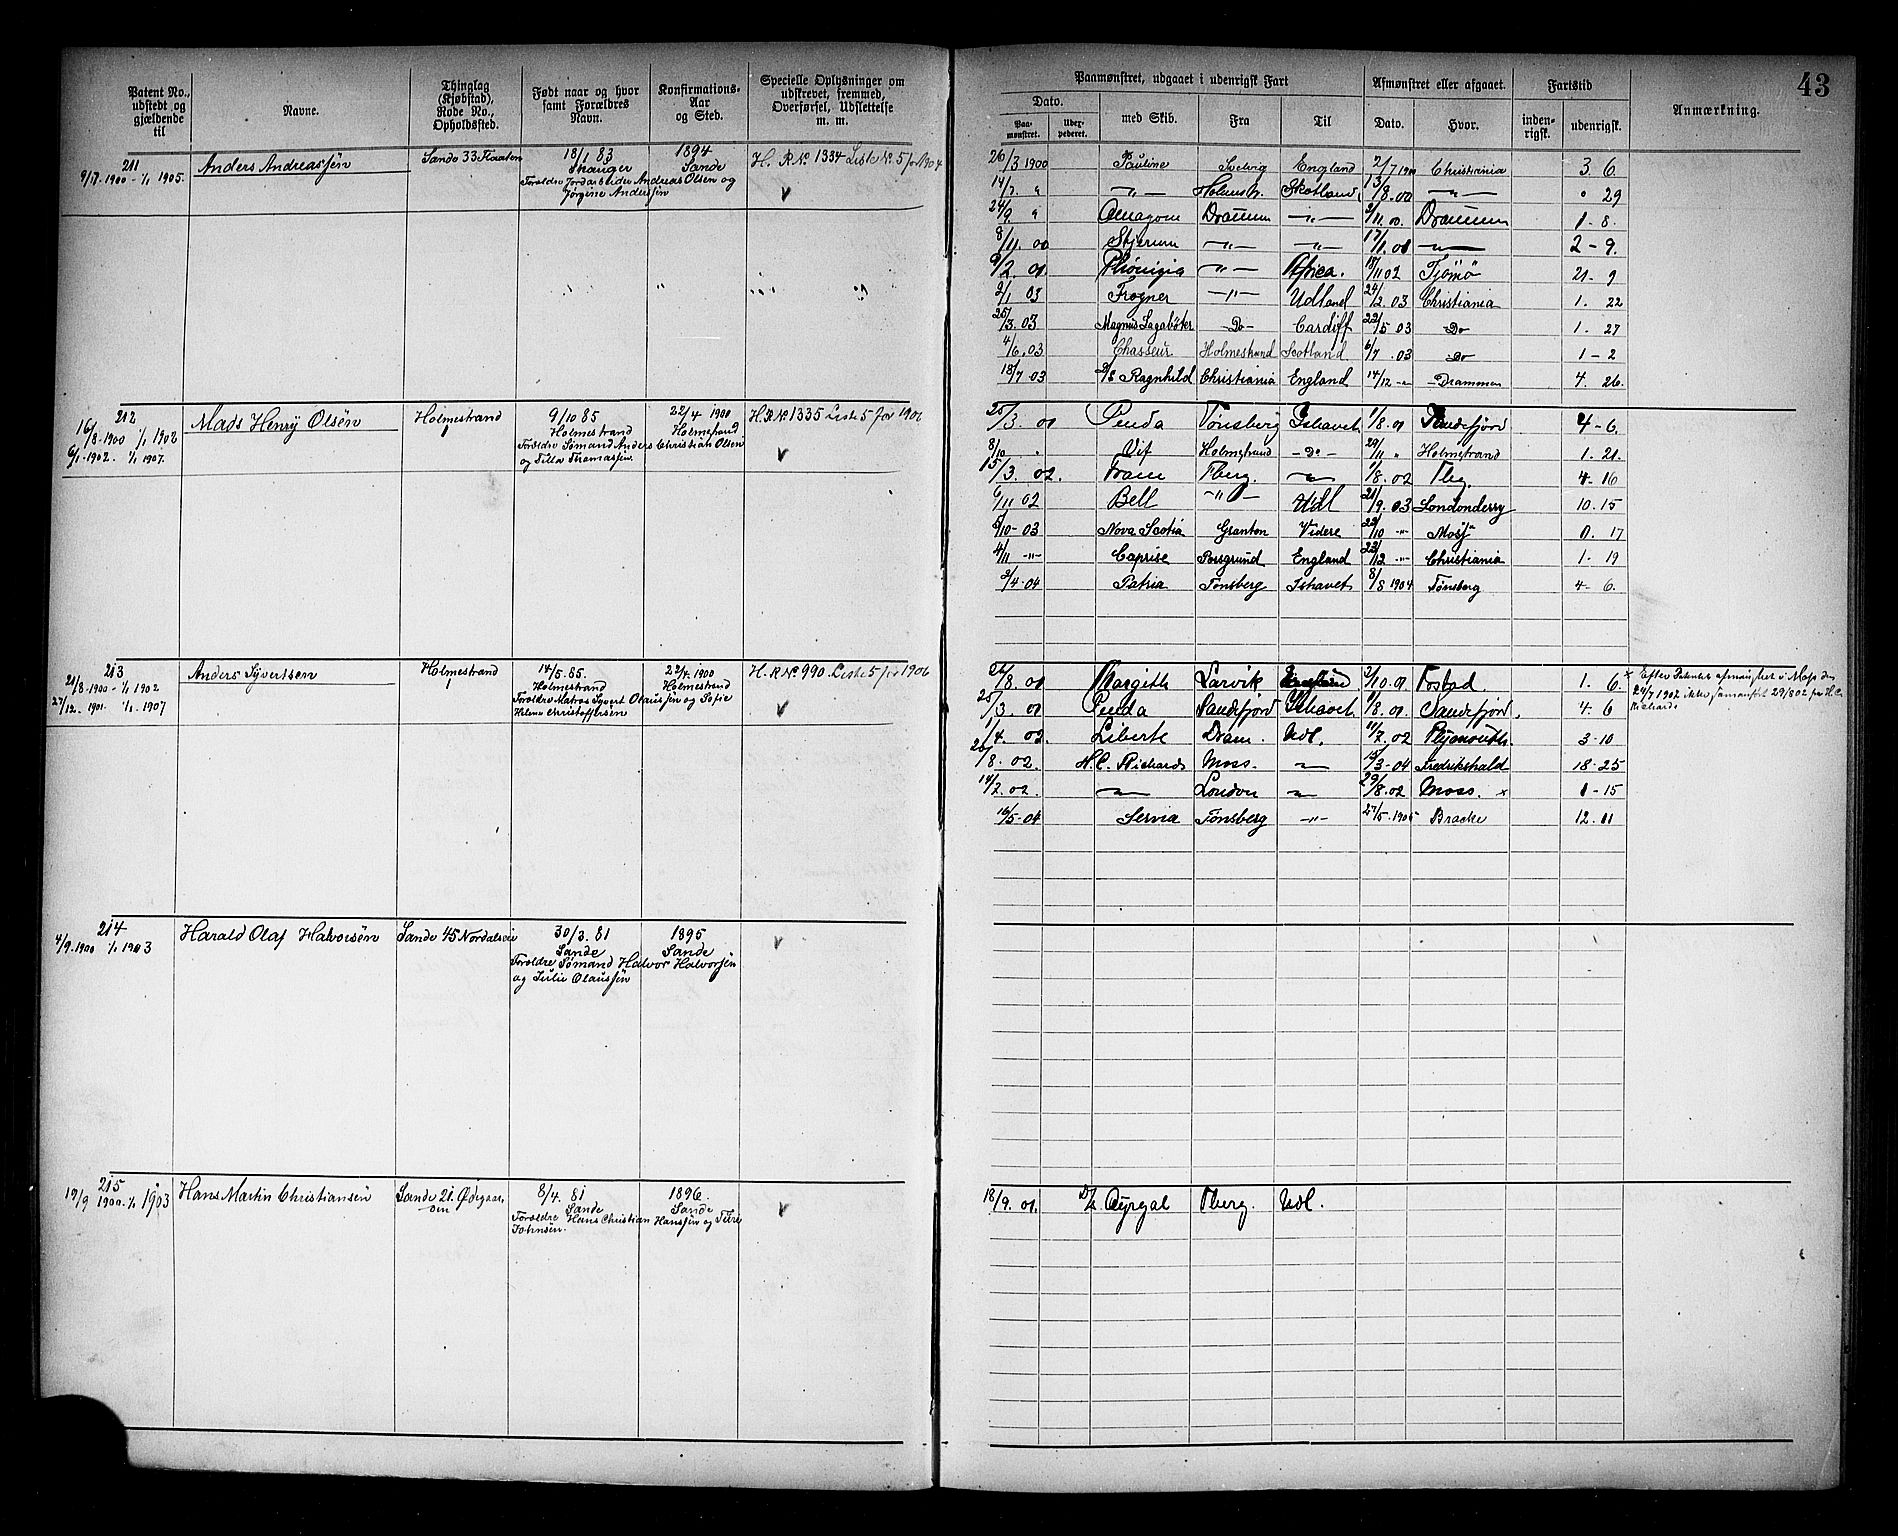 43
Patent No., udstedt og gjældende til
Navne.
Thinglag (Kjøbstad), Rode No., Opholdsfed.
Født naar og hvor samt Forældres Navn.
Konfirmations-Aar og Sted.
Specielle Oplysninger om udskrevet, fremmed, Overførsel, Udslettelse m. m.
Paamønstret, udgaaet i udenrigsk Fart
Afmønstret eller afgaaet.
Fartstid
Anmærkning.
Dato.
med Skib.
Fra
Til
Dato.
Hvor.
inden-rigsk.
udenrigsk.
Paa-mønstret.
211
1900 - 1/1 1905.
Anders Andreassen
Sande 33
18/1 83
Forældre Jordarbeider Andreas Olsen og
Jørgine Anderssen
1894
Sande
H. R No 1334 Liste No 5 for 1904
26/3 1900 Pauline Svelvig England 2/7 1900 Christiania 3 6
14/7 " —„— Holmestr. Skotland /8.00 —„— 29
24/9 " Dramm —„— 2/11.00. Drammen 1 - 8.
8/11 00 Stjernen —„— —„— 17/1.01 —„— 2 - 9.
9/2 01 —„— Africa. 18/11 02 Tjømø 21 - 9
2/1 03 Frogner —„— Udland 24/2.03 Christiania 1. 22
25/3.03 Magnus Lagabøter —Do— Cardiff 22/5 03 Do 1. 27
4/6.03 Chasseur Holmestrand Scotland 6/7 .03 Do 1 - 2
18/7 03 D/S Ragnhild Christiania England 14/12 —„— Drammen 4. 26.
212
16/8.1900 1/1 1902
6/1.1902. 1/1 1907.
Mads Henry Olsen
Holmestrand
9/10 85
Holmestrand
Forældre Sømand Anders Christian Olsen
og Tilla Thomassen.
22/4 1900
Holmestrand
H.R No 1335 Liste 5 for 1906
25/3. 01 Penda Tønsberg Ishavet 1/8.01 Sandefjord 4 - 6.
8/10 " Vif Holmestrand —Do— 29/11 " Holmestrand 1. 21.
15/3. 02. Fram Tberg. —„— 1/8.02 Tbg. 4 - 16
6/11 02 Bell —„— Udl 21/9.03 Londonderry 10. 15
5/10 - 03 Nova Scotia Granton Videre 22/10 —„— Moss 0. 17
4/11 —„— Caprise Porsgrund England 23/12 —„— Christiania 1 - 19
2/4.04 Patria Tønsberg Ishavet 8/8 1904 Tønsberg 4 - 6.
213
21/8.1900 - 1/1 1902
27/12. 1901. 1/1 1907
Anders Syvertsen
Holmestrand
14/5. 85.
Holmestrand
Forældre Matros Syvert Olaussen og Sofie
Helene Christoffersen
22/4 1900
Holmestrand
H. R No 990 Liste 5 for 1906
26/8. 01 Margith Larvik 3/10.01 Fostad. 1. 6.
25/3. 01 Penda Sandefjord Ishavet 1/8.01. Sandefjord. 4. 6
1/4. 02. Liberte Dram. Udl. 11/7.02 Plymouth. 3 - 10
20/8.02. H.C. Richards Moss. —„— 19/3 - 04 Fredrikshald 18 - 25
14/7.02. —„— London —„— 29/8.02 Moss. x 1 - 15
16/5.04 Servia Tønsberg —„— 27/5.1905 Bracke 12. 11
x Efter Patentet afmønstret i Moss den
24/7 1902 ikke 29/8 02 fra H.C.
Richards
214
4/9.1900 1/1 1903
Harald Olaf Halvorsen
Sande 45
30/3. 81
Sande
Forældre Sømand Halvor Halvorsen
og Julie Olaussen
1895
Sande
215
17/9 1900. 1/1 1903
Hans Martin Christiansen
Sande 21. Ødegaarden
8/4. 81
Sande
Forældre Hans Christian Hanssen og
Johnsen.
1896.
Sande
18/9. 01. Tberg. Udl.